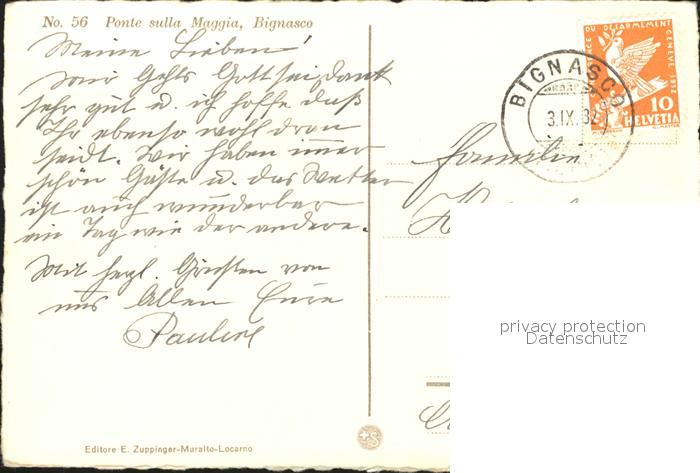 No. 56 Ponte sulla Maggia, Bignasco
Meine Lieben!
Mir Gehts Gott sei dank
sehr gut u. ich hoffe daß
Ihr ebenso wohl dran
seidt. Wir haben imer
schön Gäste u. das Wetter
ist auch wunderbar
ein Tag wie der andere.
Mit herzl. Grüssen von
uns Allen Eure
Pauline
Editore E. Zuppinger-Muralto-Locarno
CONFERENCE DU DESARMEMENT GENEVE 1932
10
HELVETIA
BIGNASCO
3.IX.32
Familie
privacy protection
Datenschutz